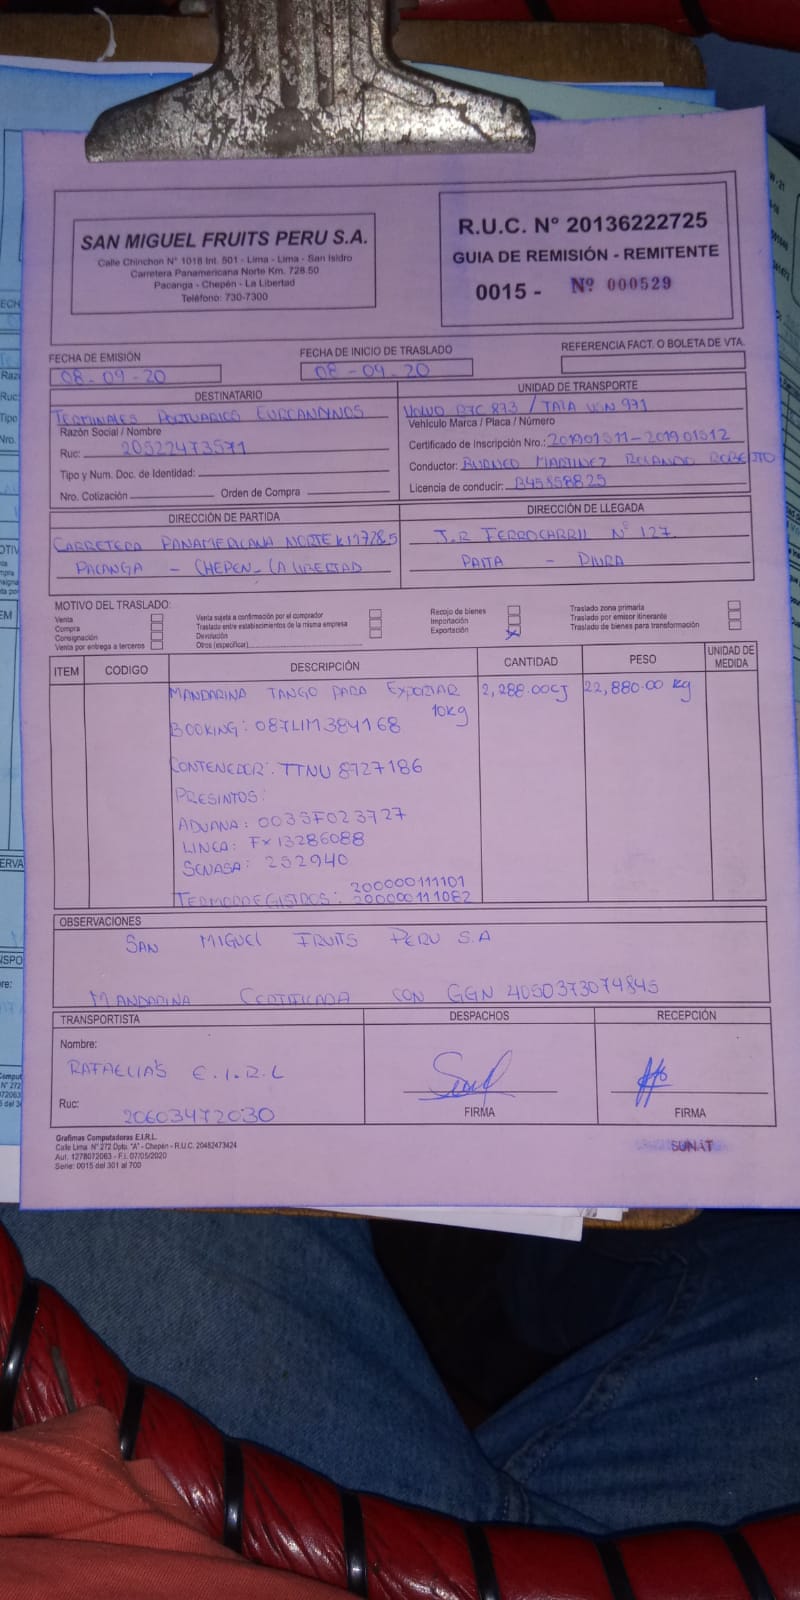 SAN MIGUEL FRUITS PERU S.A.
Calle Chinchon N° 1018 Int. 501 - Lima - Lima - San Isidro
Carretera Panamericana Norte Km. 728.50
Pacanga - Chepén - La Libertad
Teléfono: 730-7300
R.U.C. N° 20136222725
GUIA DE REMISIÓN - REMITENTE
0015 - Nº 000529
FECHA DE EMISIÓN
08-09-20
FECHA DE INICIO DE TRASLADO
08-09-20
REFERENCIA FACT. O BOLETA DE VTA.
DESTINATARIO
TERMINALES PORTUARIOS EUROANDINOS
Razón Social / Nombre
Ruc: 20522473571
Tipo y Num. Doc. de Identidad:
Nro. Cotización Orden de Compra
UNIDAD DE TRANSPORTE
VOLVO 873 / 971
Vehículo Marca / Placa / Número
Certificado de Inscripción Nro.: 201901311-201901312
Conductor: MARTINEZ ROLANDO ROBERTO
Licencia de conducir: B45858825
DIRECCIÓN DE PARTIDA
CARRETERA PANAMERICANA NORTE
PACANGA - CHEPEN - LA LIBERTAD
DIRECCIÓN DE LLEGADA
J.R FERROCARRIL N° 127
PAITA - PIURA
MOTIVO DEL TRASLADO:
Venta
Compra
Consignación
Venta por entrega a terceros
Venta sujeta a confirmación por el comprador
Traslado entre establecimientos de la misma empresa
Devolución
Otros (especificar)
Recojo de bienes
Importación
Exportación X
Traslado zona primaria
Traslado por emisor itinerante
Traslado de bienes para transformación
ITEM CODIGO DESCRIPCIÓN CANTIDAD PESO UNIDAD DE MEDIDA
MANDARINA TANGO PARA EXPORTAR 2,288.00CJ 22,880.00 kg
10kg
BOOKING: 087LIM384168
CONTENEDOR: TTNU 8727186
PRESINTOS:
ADUANA: 0035F023727
LINEA: FX13286088
SENASA: 252940
200000111101
TERMOREGISTROS: 200000111082
OBSERVACIONES
SAN MIGUEL FRUITS PERU S.A
MANDARINA CERTIFICADA CON GGN 4050373074845
TRANSPORTISTA
Nombre:
RAFAELIA'S E.I.R.L
Ruc: 20603472030
DESPACHOS
FIRMA
RECEPCIÓN
FIRMA
Grafimas Computadoras E.I.R.L.
Calle Lima N° 272 Dpto. "A" - Chepén - R.U.C. 20482473424
Aut. 1278072063 - F.I. 07/05/2020
Serie: 0015 del 301 al 700
SUNAT